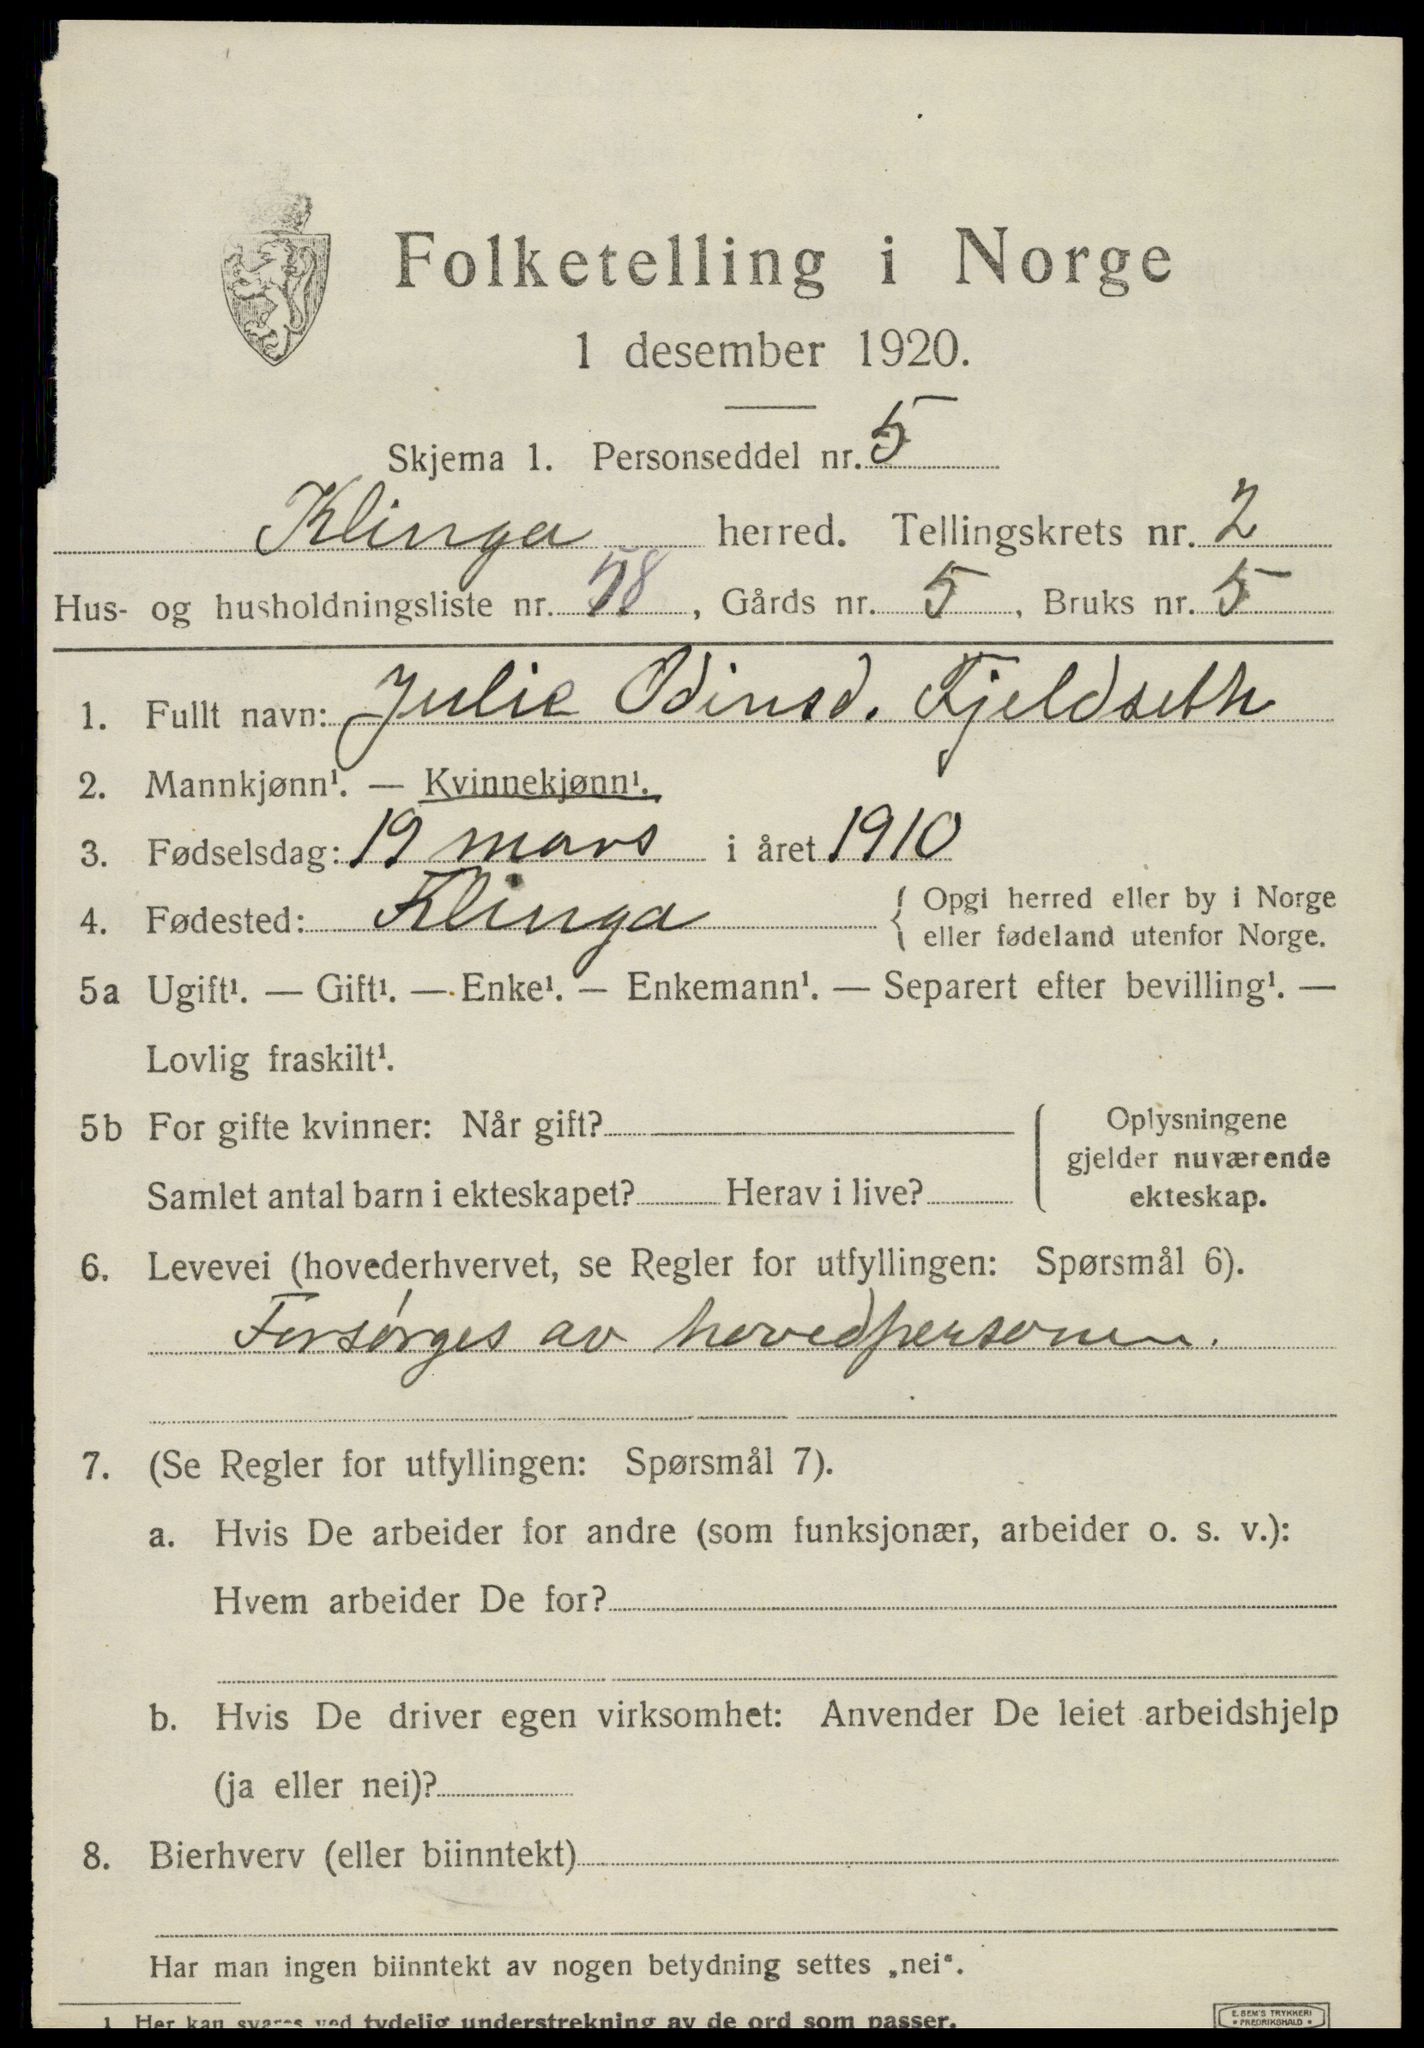 Folketelling i Norge
1 desember 1920.
Skjema 1. Personseddel nr. 5
Klinga herred. Tellingskrets nr. 2
Hus- og husholdningsliste nr. 58, Gårds nr. 5, Bruks nr. 5
1. Fullt navn: Julie Odinsd. Fjeldseth
2. Mannkjønn¹. — Kvinnekjønn¹.
3. Fødselsdag: 19 mars i året 1910
4. Fødested: Klinga { Opgi herred eller by i Norge
eller fødeland utenfor Norge.
5a Ugift¹. — Gift¹. — Enke¹. — Enkemann¹. — Separert efter bevilling¹. —
Lovlig fraskilt¹.
5b For gifte kvinner: Når gift?
Samlet antal barn i ekteskapet? Herav i live?
Oplysningene
gjelder nuværende
ekteskap.
6. Levevei (hovederhvervet, se Regler for utfyllingen: Spørsmål 6).
Forsørges av hovedpersonen.
7. (Se Regler for utfyllingen: Spørsmål 7).
a. Hvis De arbeider for andre (som funksjonær, arbeider o. s. v.):
Hvem arbeider De for?
b. Hvis De driver egen virksomhet: Anvender De leiet arbeidshjelp
(ja eller nei)?
8. Bierhverv (eller biinntekt)
Har man ingen biinntekt av nogen betydning settes „nei“.
1 Her kan svares ved tydelig understrekning av de ord som passer.
E. SEM'S TRYKKERI
* FREDRIKSHALD *